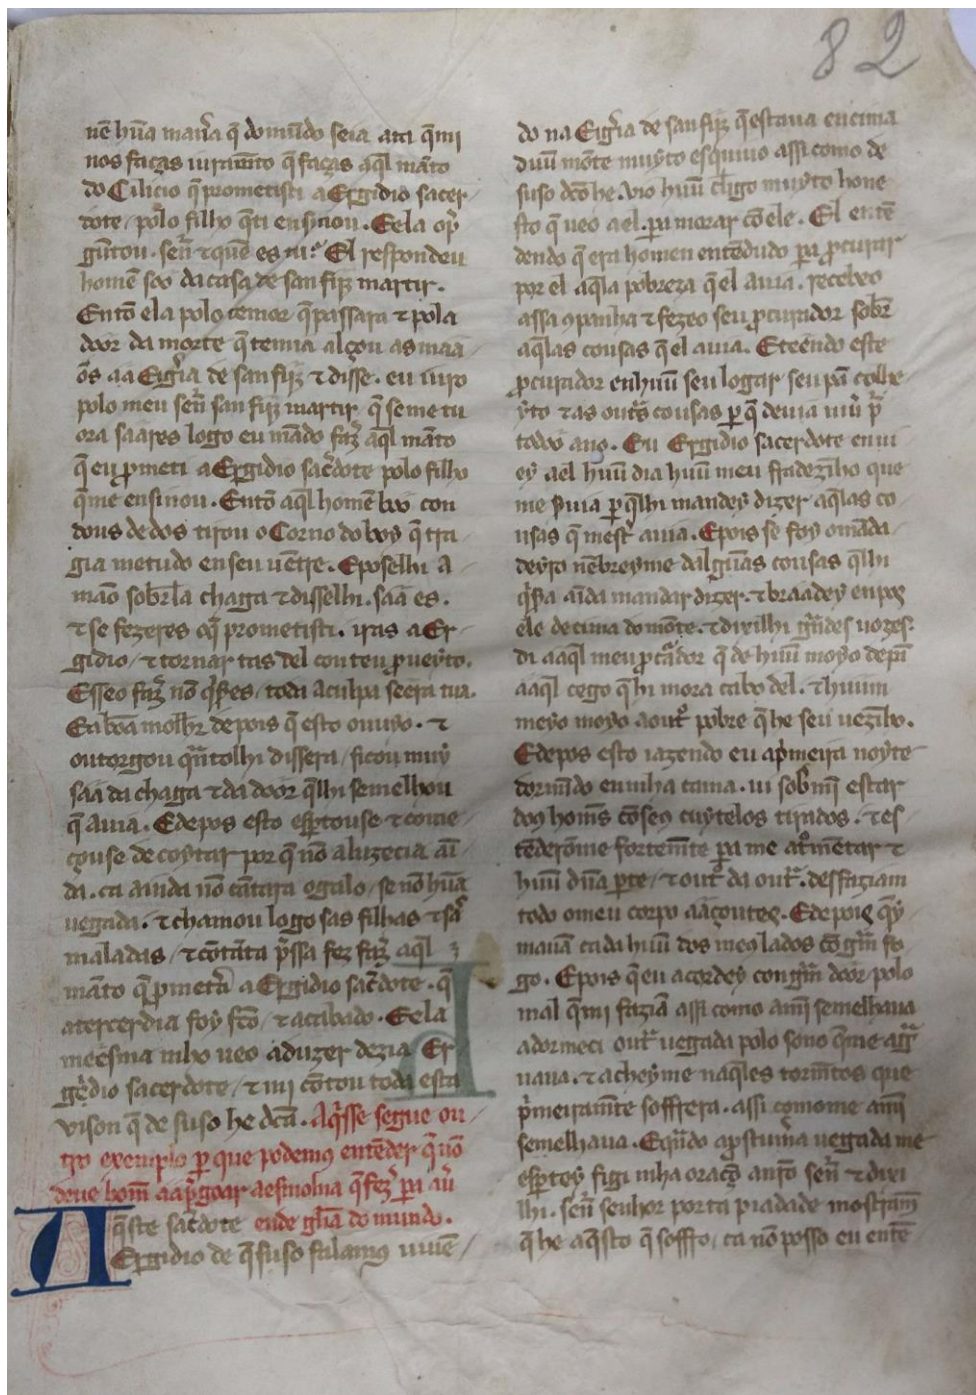 82
nẽ hũa man̄a q̃ do mũdo seia ata q̃ mi
nos faças iuramẽto q̃ faças aq̃l mãto
do Cilicio q̃ prometisti a Ergidio sacer
dote / polo filho q̃ ti ensynou . E ela op̃
gũtou . señ ⁊ quẽ es tu . El respondeu
homẽ soo da casa de san fijz martir .
Entõ ela polo temor q̃ passara ⁊ pola
door da morte q̃ temia alçou as maã
õs aa Eigr̃ia de san fijz ⁊ disse . eu iuro
polo meu señ san fijz martir q̃ se me tu
ora saares logo eu mãdo faz̃ aq̃l mãto
q̃ eu ꝓmeti a Ergidio sac̃dote polo filho
q̃ me ensinou . Entõ aq̃l homẽ boo con
dous dedos tirou o Corno do boy q̃ tra
gia metudo en seu uẽtre . E poselhi a
mão sobr̃la chaga ⁊ disselhi . saã es .
⁊ se fezeres o q̃ prometisti . iras a Er
gidio / ⁊ tornar tas del con teu ꝓueyto .
E sseo faz̃ nõ q̃s̃es / toda a culpa seera tua .
E a bõa molh̃r depois q̃ esto ouuyo . ⁊
outorgou quãto lhi dissera / ficou muy
saã da chaga ⁊ da door q̃ lhi semelhou
q̃ auia . E depos esto esp̃touse ⁊ come
çouse de coytar por q̃ nõ aluzecia aĩ
da . ca ainda nõ cãtara o galo / se nõ hũa
uegada . ⁊ chamou logo sas filhas ⁊ sas̃
maladas / ⁊ cõ tãta p̃ssa fez faz̃ aq̃l
mãto q̃ ꝓmet̃a a Ergidio sac̃dote . q̃
a tercer dia foy fc̃o / ⁊ acabado . E ela
meesma mho ueo aduzer dezia Er
gidio sacerdote / ⁊ mi cõtou toda esta
vison q̃ de suso he dc̃a . Aq̃sse segue ou
tro exemplo per que podemus entẽder q̃ nõ
deue hom̃ a ap̃goar a esmolna q̃ fez̃ pera au̾
q̃ste sac̃dote ende gl̃ia do mundo .
A Ergidio de q̃ suso falamus uiuẽ
do na Eigr̃ia de san fijz q̃ estaua encima
duũ mõte muyto esquiuo assi como de
suso dc̃o he . Uio huũ cl̃igo muyto hone
sto q̃ ueo a el . pera morar cõ ele . El entẽ
dendo q̃ era homen entẽdudo pera ꝓcurar
por el aq̃la pobreza q̃ el auia . recebeo
assa cõpanha ⁊ fezeo seu ꝓcurador sobr̃
aq̃las cousas q̃ el auia . E teẽdo este
ꝓcurador en huũ seu logar seu pã colhe
yto ⁊ as outr̃s cousas per q̃ deuia uiũ p̃
todoo ano . Eu Ergidio sacerdote enui
ey a el huũ dia huũ meu ffradezĩho que
me s̃uia per q̃ lhi mandey dizer aq̃las co
usas q̃ mest̃ auia . E pois se foy o mãda
deyro nẽbreyme dalguãs cousas q̃ lhi
q̃s̃a aĩda mandar dizer . ⁊ braadey en pos
ele de cima do mõte . ⁊ dixilhi gr̃ndes uozes .
di a aq̃l meu ꝓcador q̃ de huũ moyo de pã
a aq̃l cego q̃ hi mora cabo del . ⁊ huum
meyo moyo a outro pobre q̃ he seu uezĩho .
E depos esto iazendo eu a p̃meira noyte
dormĩdo en mha cama . ui sob̾ mĩ estar
dous hom̃s cõ seus cuytelos tirados . ⁊ es
tẽderõme fortem̃te pera me atormẽtar ⁊
huũ dũa parte / ⁊ outro da outr̃ . desfaziam
todo o meu corpo a açoutes . E depois q̃y
mauã cada huũ dos meus lados cõ gr̃m fo
go . E pois q̃ eu acordey con gr̃m door polo
mal q̃ mi faziã assi como a mĩ semelhaua
adormeci outr̃ uegada polo sono q̃ me agr̃
uaua . ⁊ acheyme naq̃les torm̃tos que
p̃meiram̃te soffrera . assi como me a mĩ
semelhaua . E quãdo a postum̃a uegada me
esp̃tey figi mha oraçõ a nr̃o señ ⁊ dixi
lhi . señ senhor por ta piadade mostram̃
q̃ he aq̃sto q̃ soffro / ca nõ posso eu entẽ